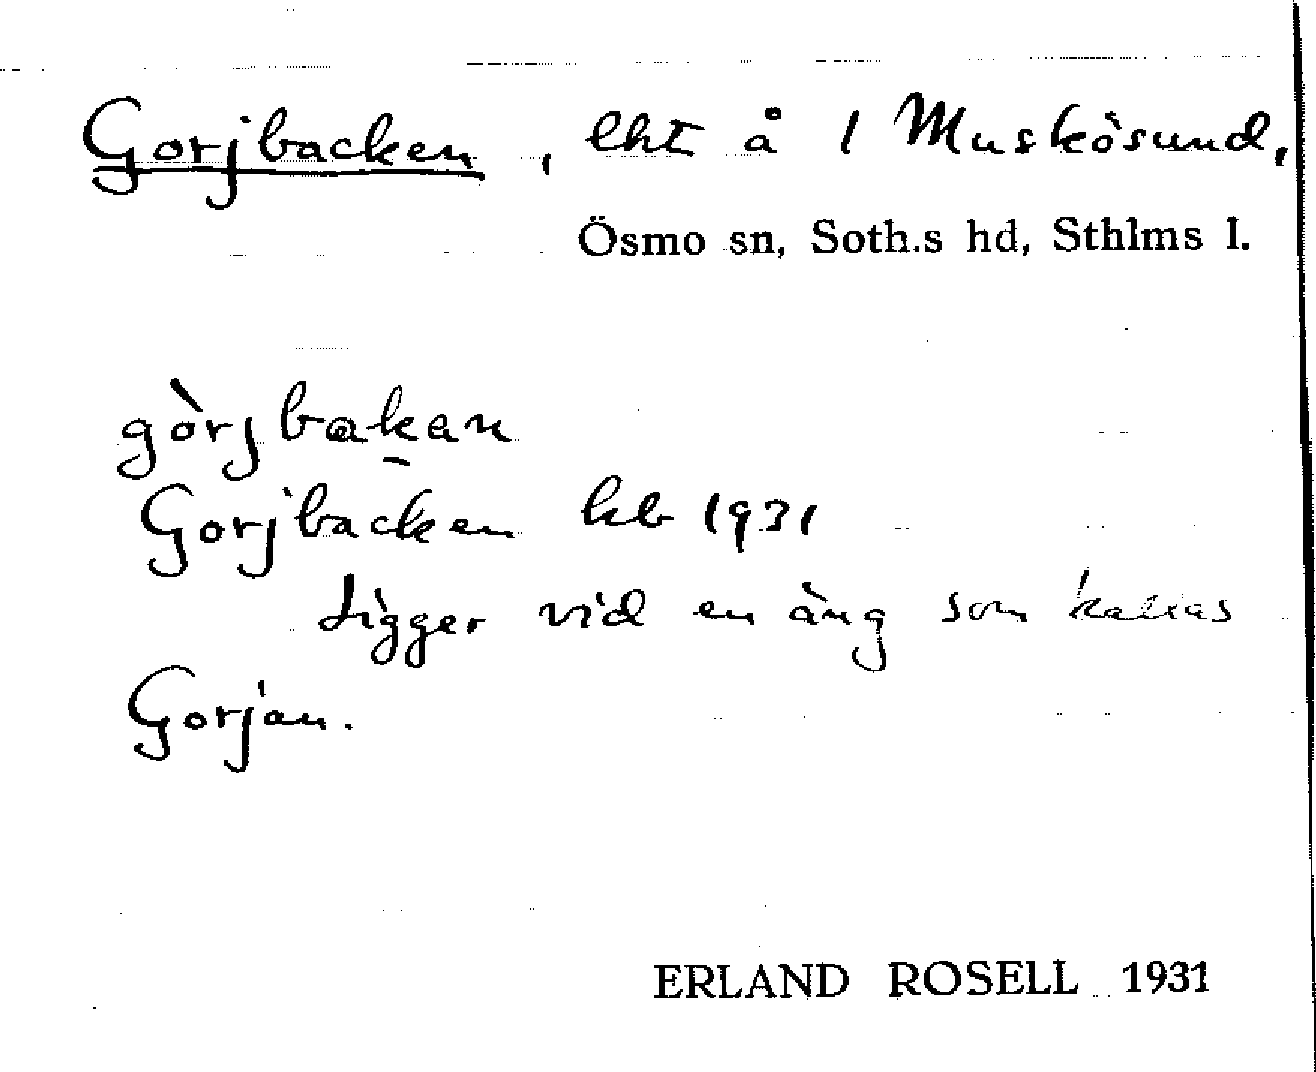 Gorjbacken, lht å 1 Muskösund,
Ösmo sn, Soth.s hd, Sthlms l.
gòrjbakan
Gorjbacken kb 1931
Ligger vid en äng som kallas
Gorjan.
ERLAND ROSELL 1931